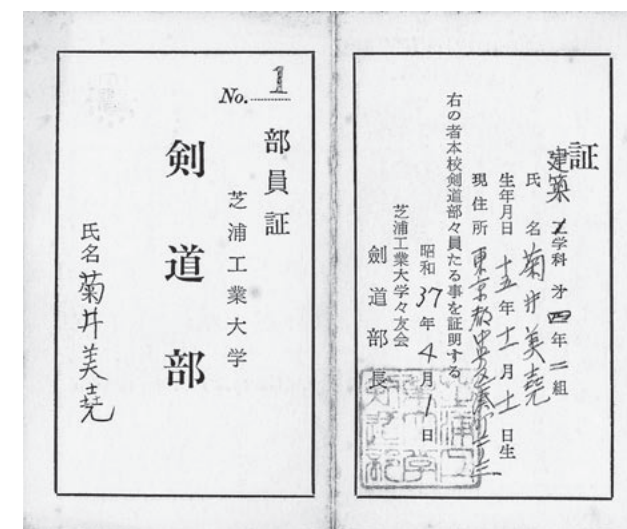 証
建築工学科 才四年二組
氏名 菊井美堯
生年月日 十五年十一月十一日生
現住所 東京都中央区湊町
右の者本校剣道部々員たる事を証明する
昭和37年4月1日
芝浦工業大学々友会
劍道部長
No. 1
部員証
芝浦工業大学
剣道部
氏名 菊井美堯